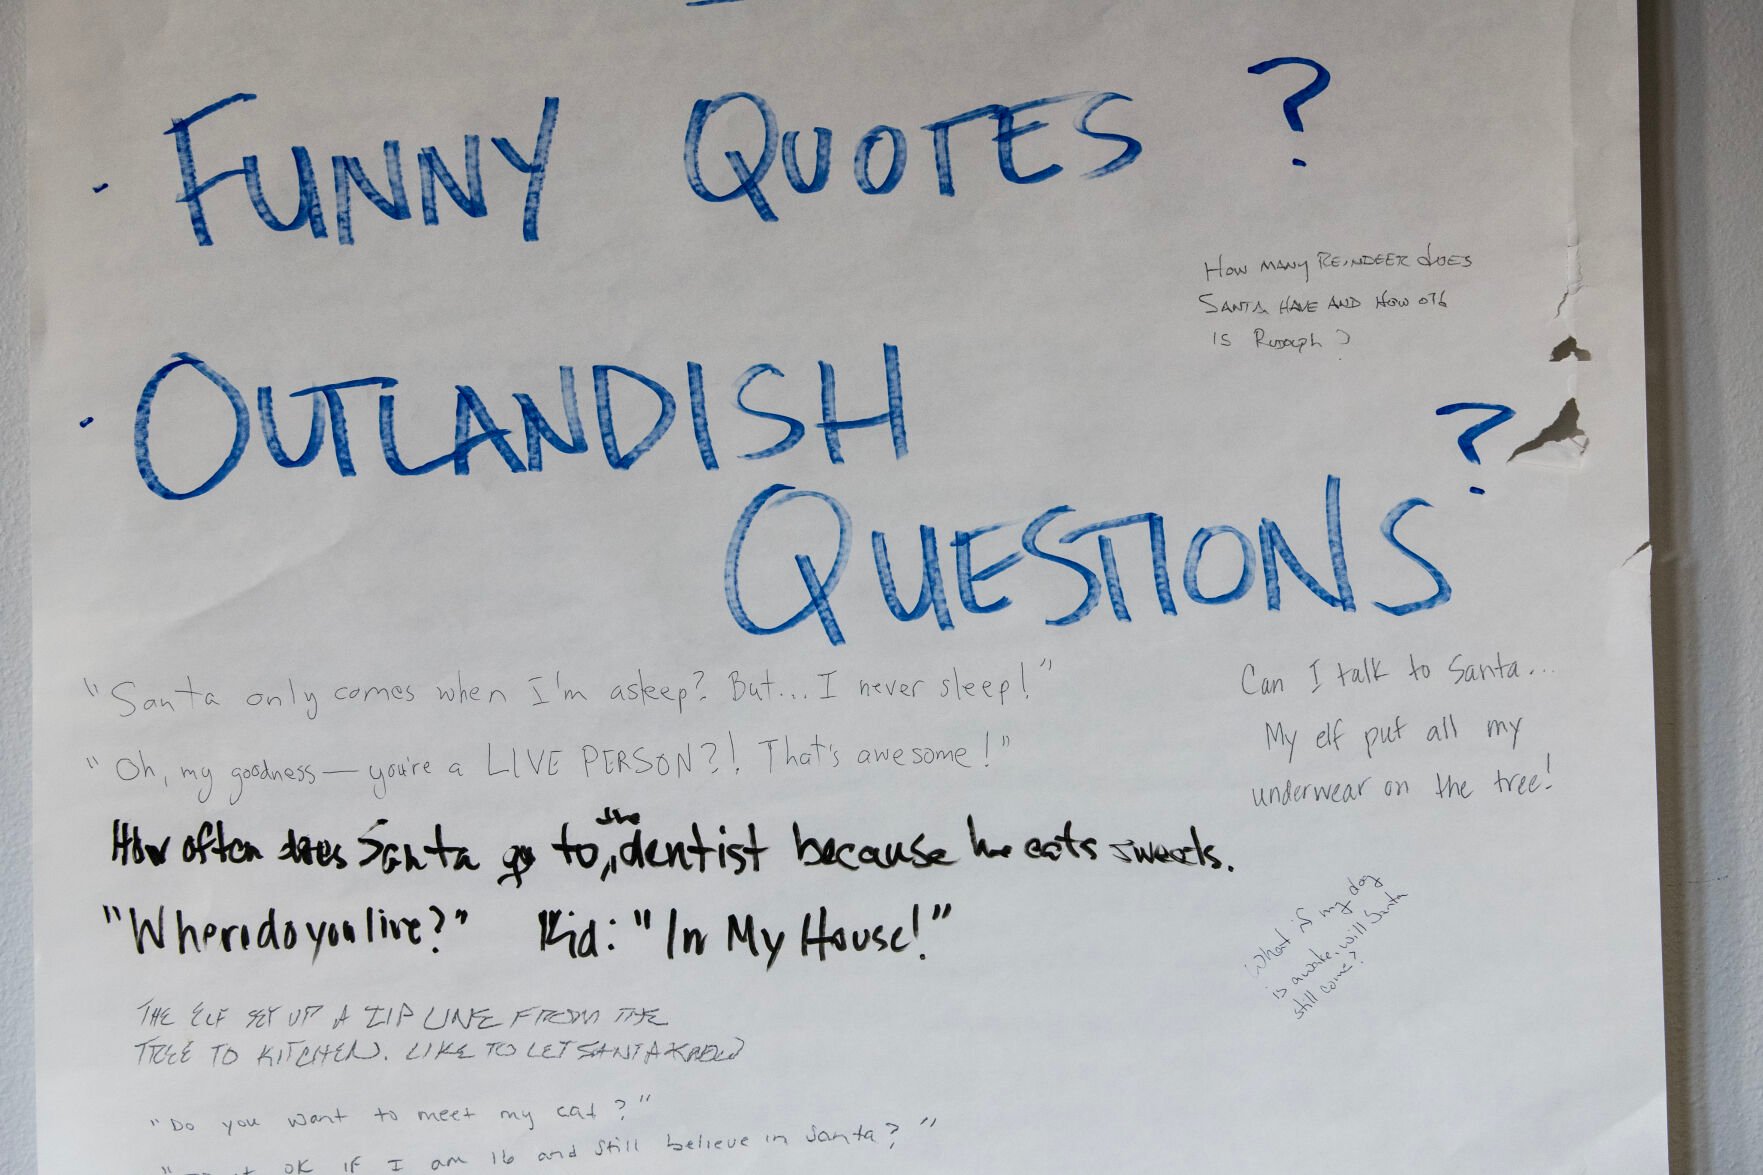 · FUNNY QUOTES ?
HOW MANY REINDEER does
SANTA HAVE AND HOW old
IS Rudolph?
· OUTLANDISH
QUESTIONS?
"Santa only comes when I'm asleep? But... I never sleep!"
"Oh, my goodness — you're a LIVE PERSON?! That's awesome!"
Can I talk to Santa...
My elf put all my
underwear on the tree!
How often does Santa go to the dentist because he eats sweets.
"Where do you live?" Kid: "In My House!"
What if my dog
is awake, will Santa
still come?
THE ELF SET UP A ZIP LINE FROM THE
TREE TO KITCHEN. LIKE TO LET SANTA KNOW
"Do you want to meet my cat?"
OK IF I am 16 and still believe in Santa?"